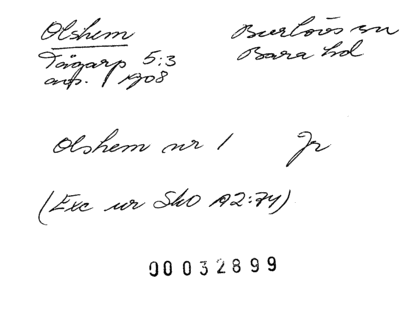 Olshem
Burlövs sn
Tågarp 5:3
Bara hd
anp. 1908
Olshem nr 1 Jr
(Exc ur Sko A2:74)
00032899